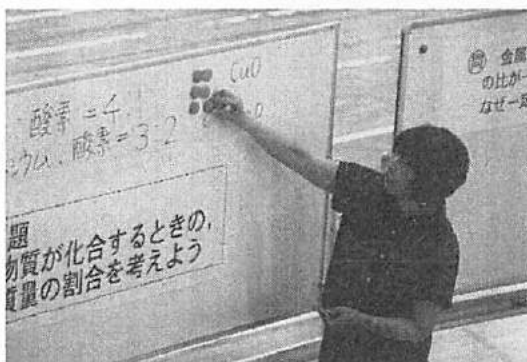 酸素=4:1
ウム:酸素=3:2
CuO
題
物質が化合するときの,
質量の割合を考えよう
問 金属
の比が一
なぜ一定